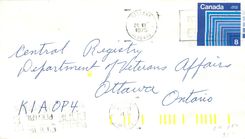 Canada
8
Central Registry
Department of Veterans Affairs
Ottawa
Ontario
K1A0P4